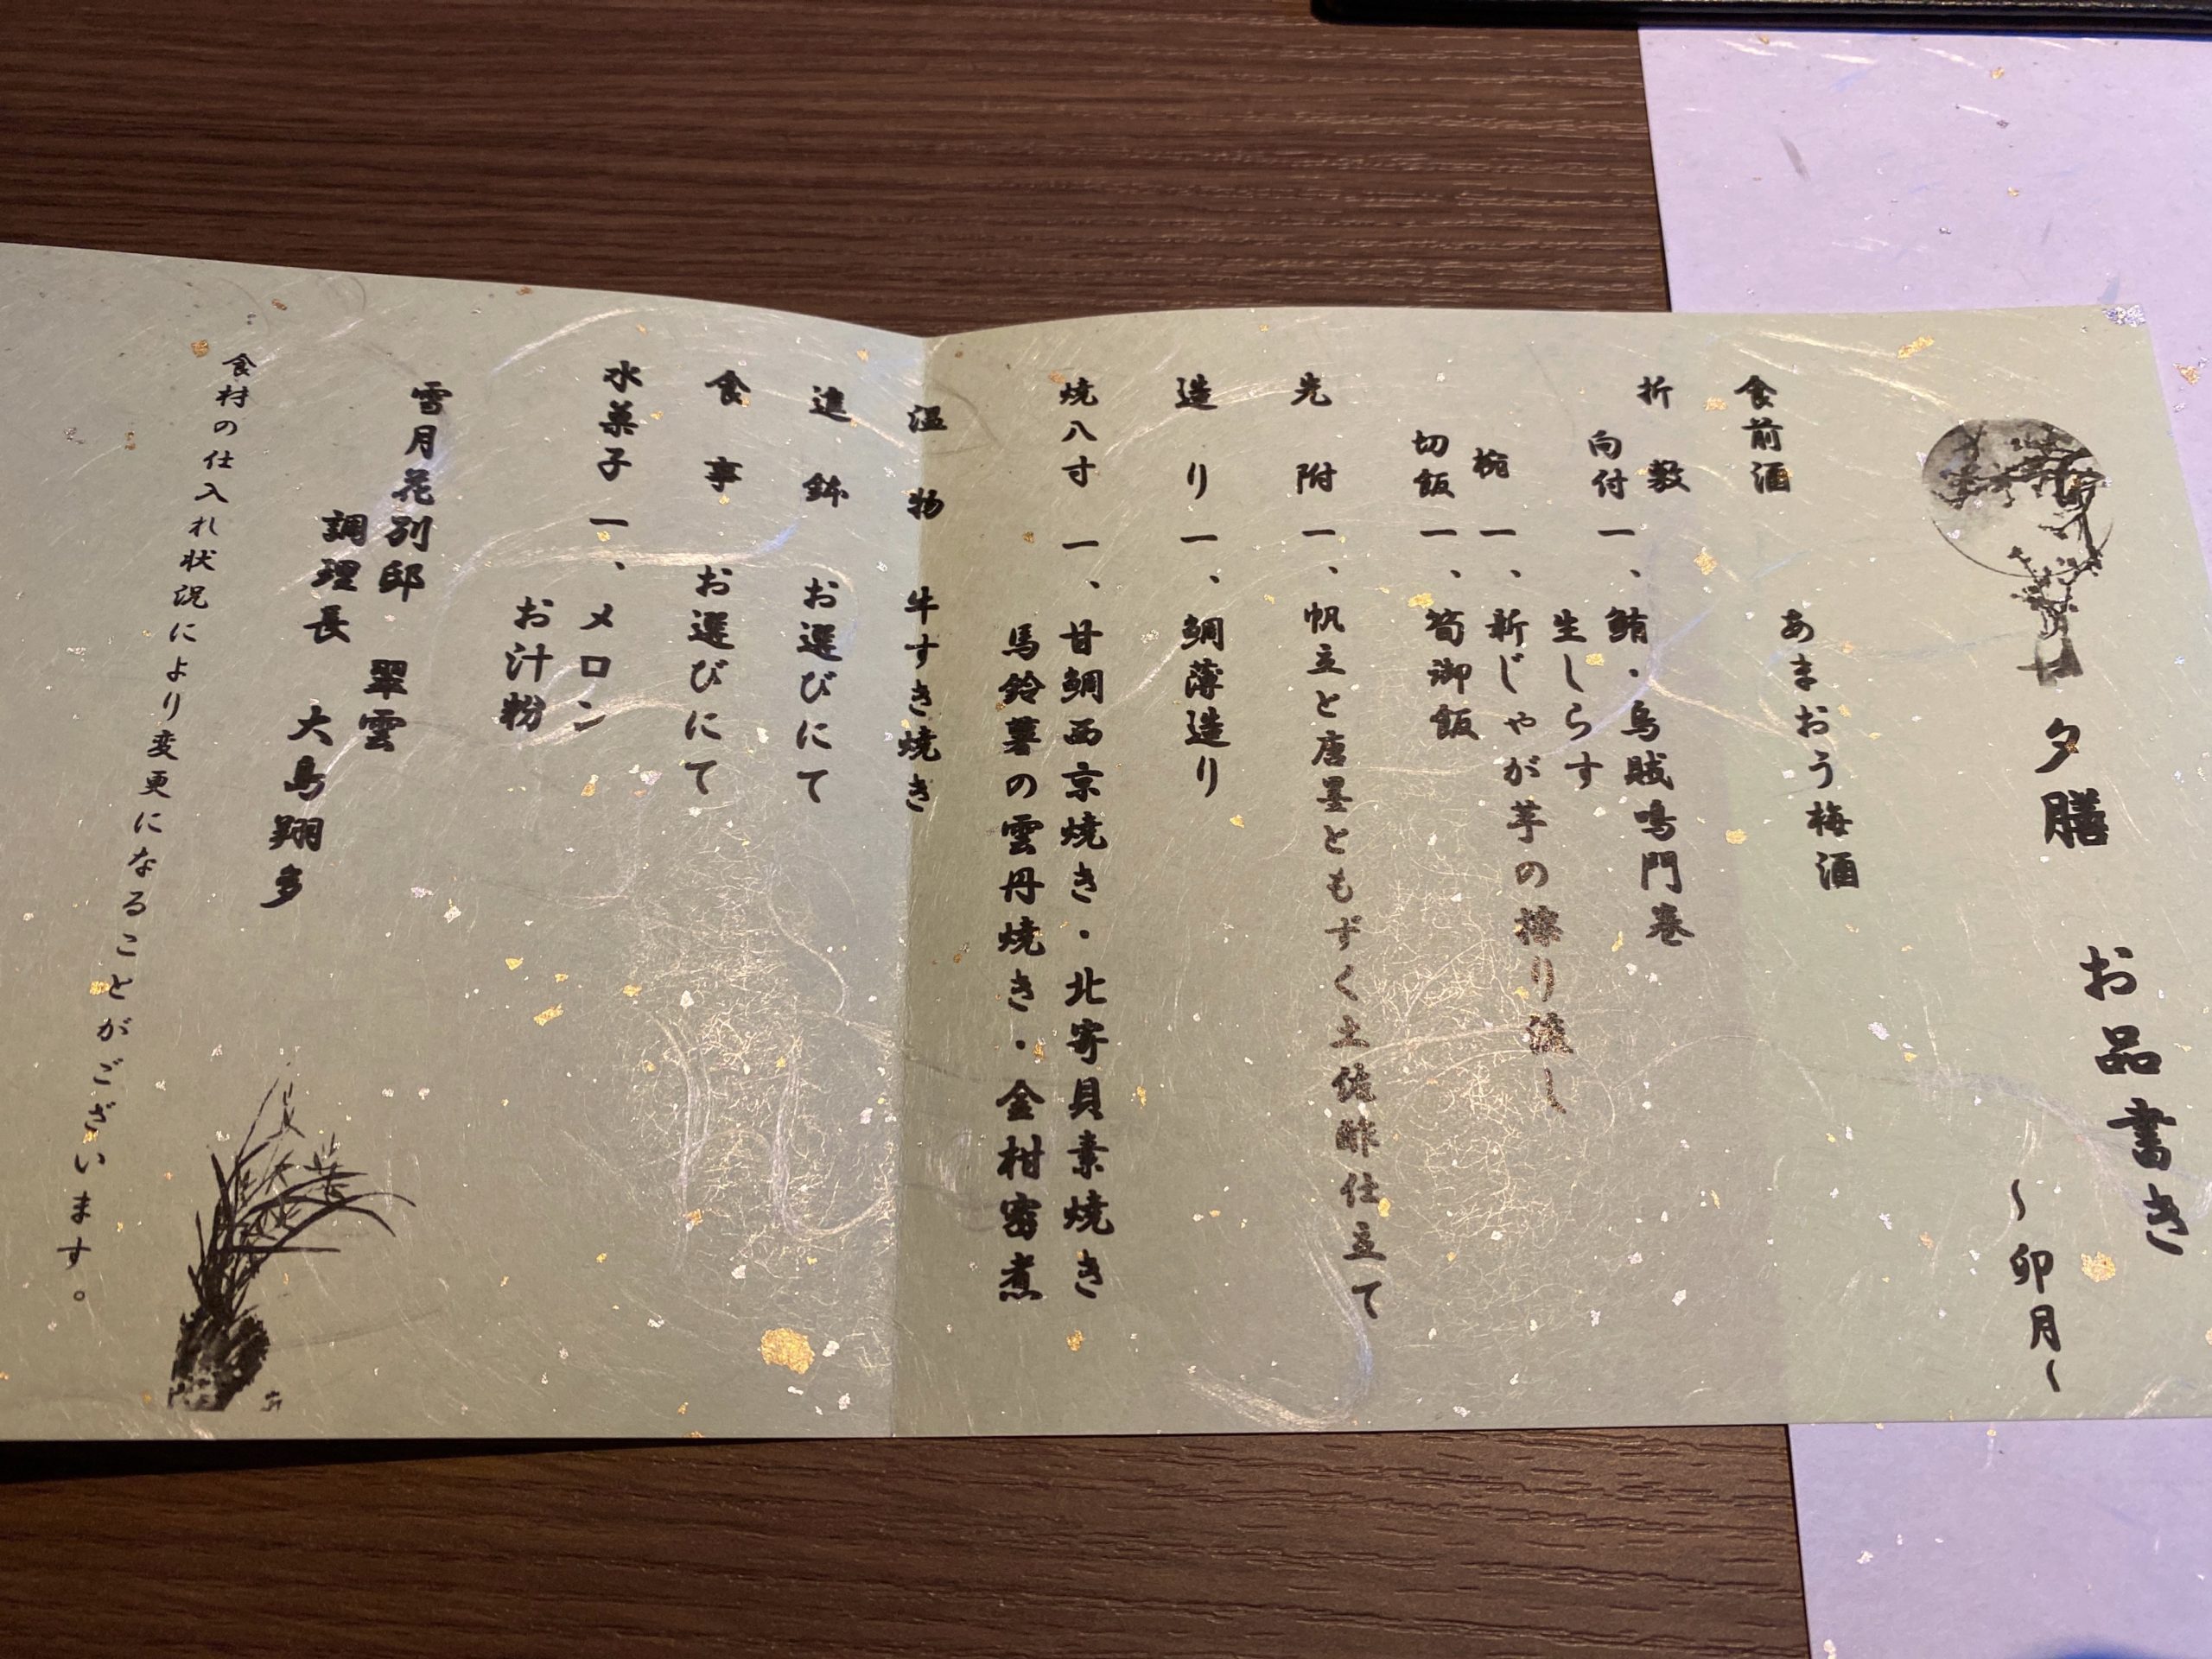 夕膳　お品書き
～卯月～
食前酒　あまおう梅酒
折敷
向付　一、鮪・烏賊鳴門巻
生しらす
椀　一、新じゃが芋の擦り流し
切飯　一、筍御飯
先附　一、帆立と唐墨ともずく土佐酢仕立て
造り　一、鯛薄造り
焼八寸　一、甘鯛西京焼き・北寄貝素焼き
馬鈴薯の雲丹焼き・金柑密煮
温物　牛すき焼き
進鉢　お選びにて
食事　お選びにて
水菓子　一、メロン
お汁粉
雪月花別邸　翠雲
調理長　大島翔多
食材の仕入れ状況により変更になることがございます。